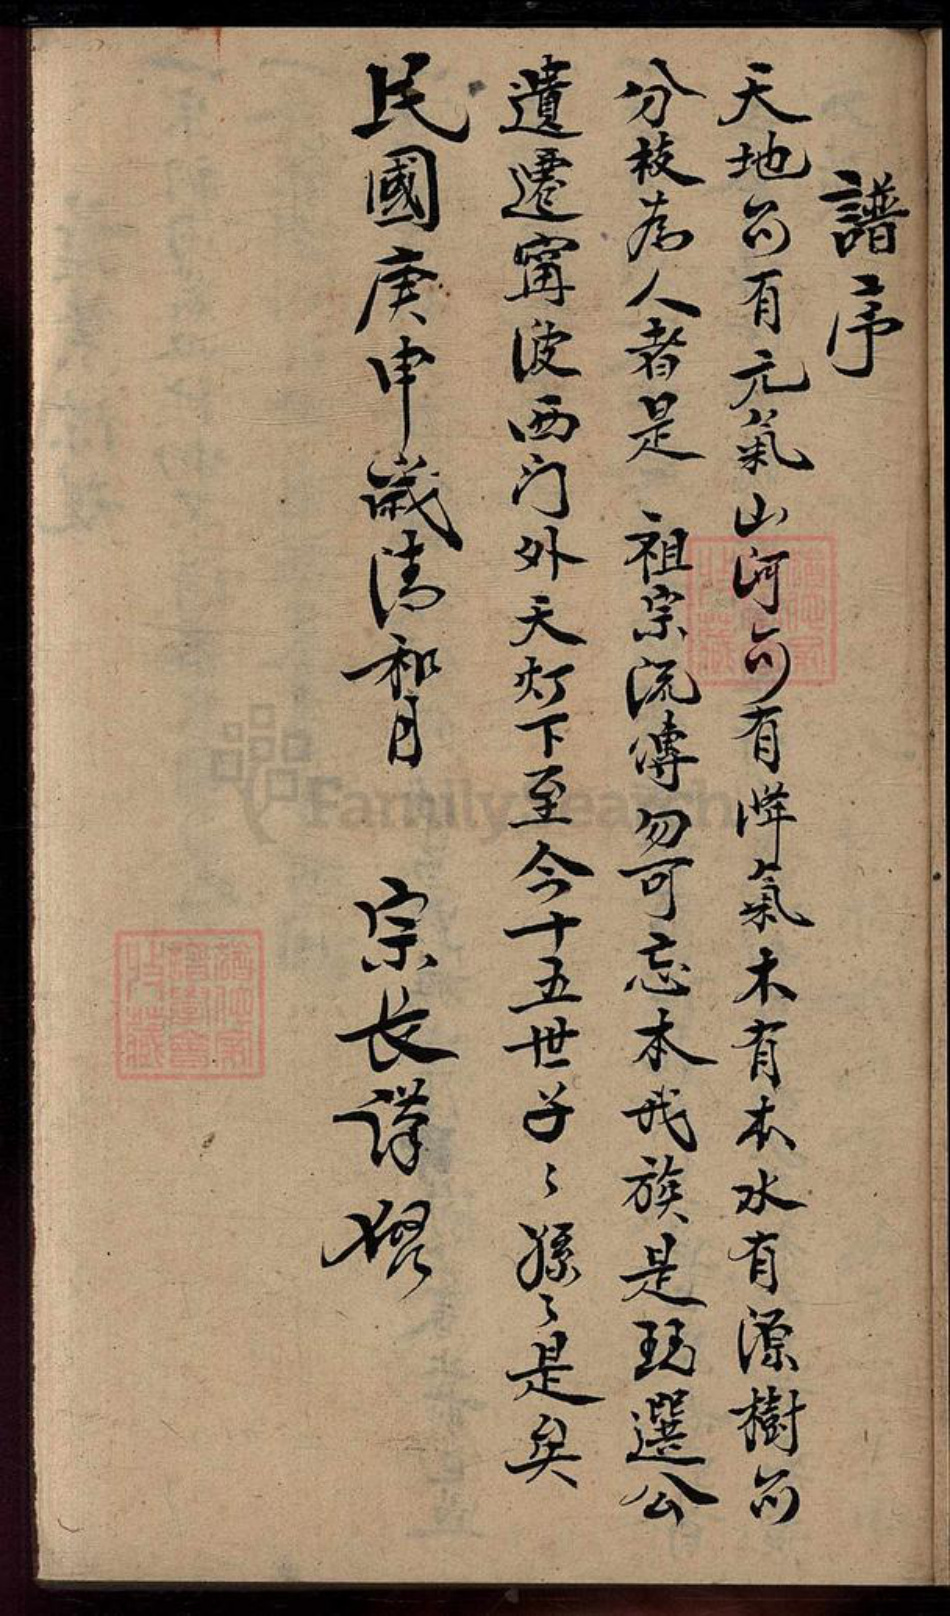 譜序
天地可有元氣山河可有降氣木有本水有源樹可
分枝为人者是 祖宗流傳勿可忘本我族是琺選公
遺遷甯波西门外天灯下至今十五世子〻孫〻是矣
民國庚申歲清和月 宗長謹
FamilySearch